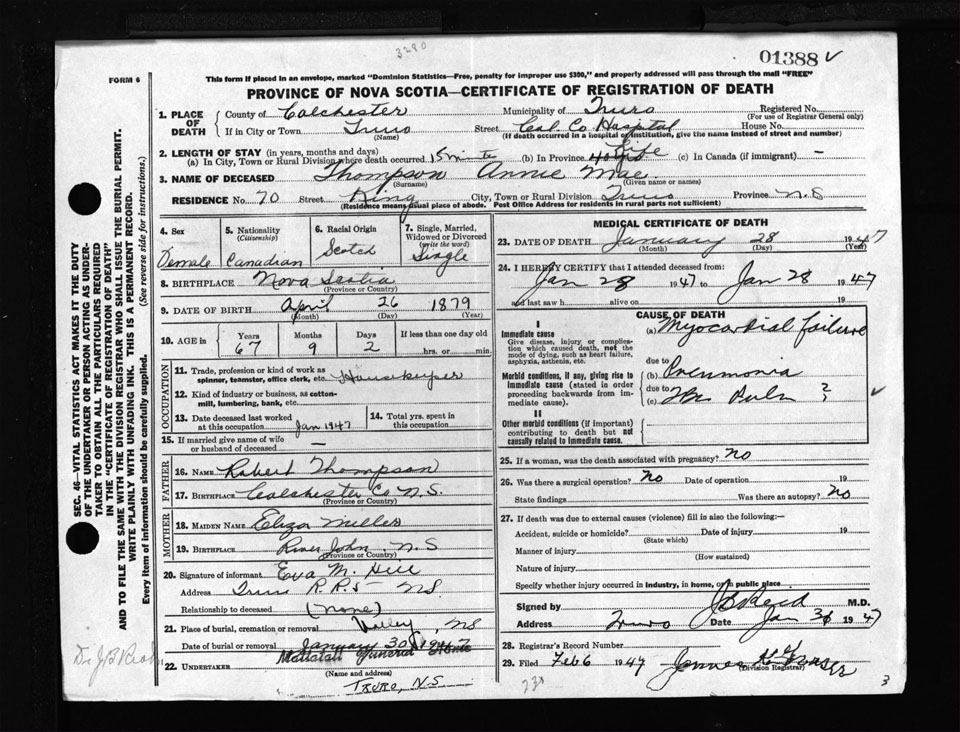 3290
01388 ✓
FORM 6
This form if placed in an envelope, marked "Dominion Statistics—Free, penalty for improper use $300," and properly addressed will pass through the mail "FREE"
PROVINCE OF NOVA SCOTIA—CERTIFICATE OF REGISTRATION OF DEATH
SEC. 46—VITAL STATISTICS ACT MAKES IT THE DUTY
OF THE UNDERTAKER OR PERSON ACTING AS UNDER-
TAKER TO OBTAIN ALL THE PARTICULARS REQUIRED
IN THE "CERTIFICATE OF REGISTRATION OF DEATH"
AND TO FILE THE SAME WITH THE DIVISION REGISTRAR WHO SHALL ISSUE THE BURIAL PERMIT.
WRITE PLAINLY WITH UNFADING INK. THIS IS A PERMANENT RECORD.
Every item of information should be carefully supplied. (See reverse side for instructions.)
1. PLACE OF DEATH County of Colchester Municipality of Truro Registered No.
(For use of Registrar General only)
If in City or Town Truro Street Col. Co. Hospital House No.
(Name) (If death occurred in a hospital or institution, give the name instead of street and number)
2. LENGTH OF STAY (in years, months and days)
(a) In City, Town or Rural Division where death occurred 15 minutes (b) In Province Life (c) In Canada (if immigrant) —
3. NAME OF DECEASED Thompson Annie Mae
(Surname) (Given name or names)
RESIDENCE No. 70 Street King City, Town or Rural Division Truro Province N.S
(Residence means usual place of abode. Post Office Address for residents in rural parts not sufficient)
4. Sex Female
5. Nationality (Citizenship) Canadian
6. Racial Origin Scotch
7. Single, Married, Widowed or Divorced (write the word) Single
8. BIRTHPLACE Nova Scotia
(Province or Country)
9. DATE OF BIRTH April 26 1879
(Month) (Day) (Year)
10. AGE in Years 67 Months 9 Days 2 If less than one day old
hrs. or min.
OCCUPATION
11. Trade, profession or kind of work as spinner, teamster, office clerk, etc. Housekeeper
12. Kind of industry or business, as cotton-mill, lumbering, bank, etc.
13. Date deceased last worked at this occupation Jan 1947
14. Total yrs. spent in this occupation
15. If married give name of wife or husband of deceased —
FATHER
16. NAME Robert Thompson
17. BIRTHPLACE Colchester Co N.S.
(Province or Country)
MOTHER
18. MAIDEN NAME Eliza Miller
19. BIRTHPLACE River John N.S
(Province or Country)
20. Signature of informant Eva M. Hill
Address Truro R.R.5 NS.
Relationship to deceased (None)
21. Place of burial, cremation or removal Valley, NS
Date of burial or removal January 30th 1947
22. UNDERTAKER Mattatall Funeral Home
(Name and address)
Truro, N.S
MEDICAL CERTIFICATE OF DEATH
23. DATE OF DEATH January 28 1947
(Month) (Day) (Year)
24. I HEREBY CERTIFY that I attended deceased from:
Jan 28 1947 to Jan 28 1947
and last saw h alive on 19
CAUSE OF DEATH
I
Immediate cause
Give disease, injury or complication which caused death, not the mode of dying, such as heart failure, asphyxia, asthenia, etc.
(a) Myocardial failure
due to
Morbid conditions, if any, giving rise to immediate cause (stated in order proceeding backwards from immediate cause).
(b) Pneumonia
due to
(c) Tbc Pulm ?
✓
II
Other morbid conditions (if important) contributing to death but not causally related to immediate cause.
25. If a woman, was the death associated with pregnancy? No
26. Was there a surgical operation? No Date of operation 19
State findings Was there an autopsy? No
27. If death was due to external causes (violence) fill in also the following:—
Accident, suicide or homicide? Date of injury 19
(State which)
Manner of injury
(How sustained)
Nature of injury
Specify whether injury occurred in industry, in home, or in public place
Signed by J B Reid M.D.
Address Truro Date Jan 31 1947
28. Registrar's Record Number
29. Filed Feb 6 1947 James H. Fraser
(Division Registrar)
3